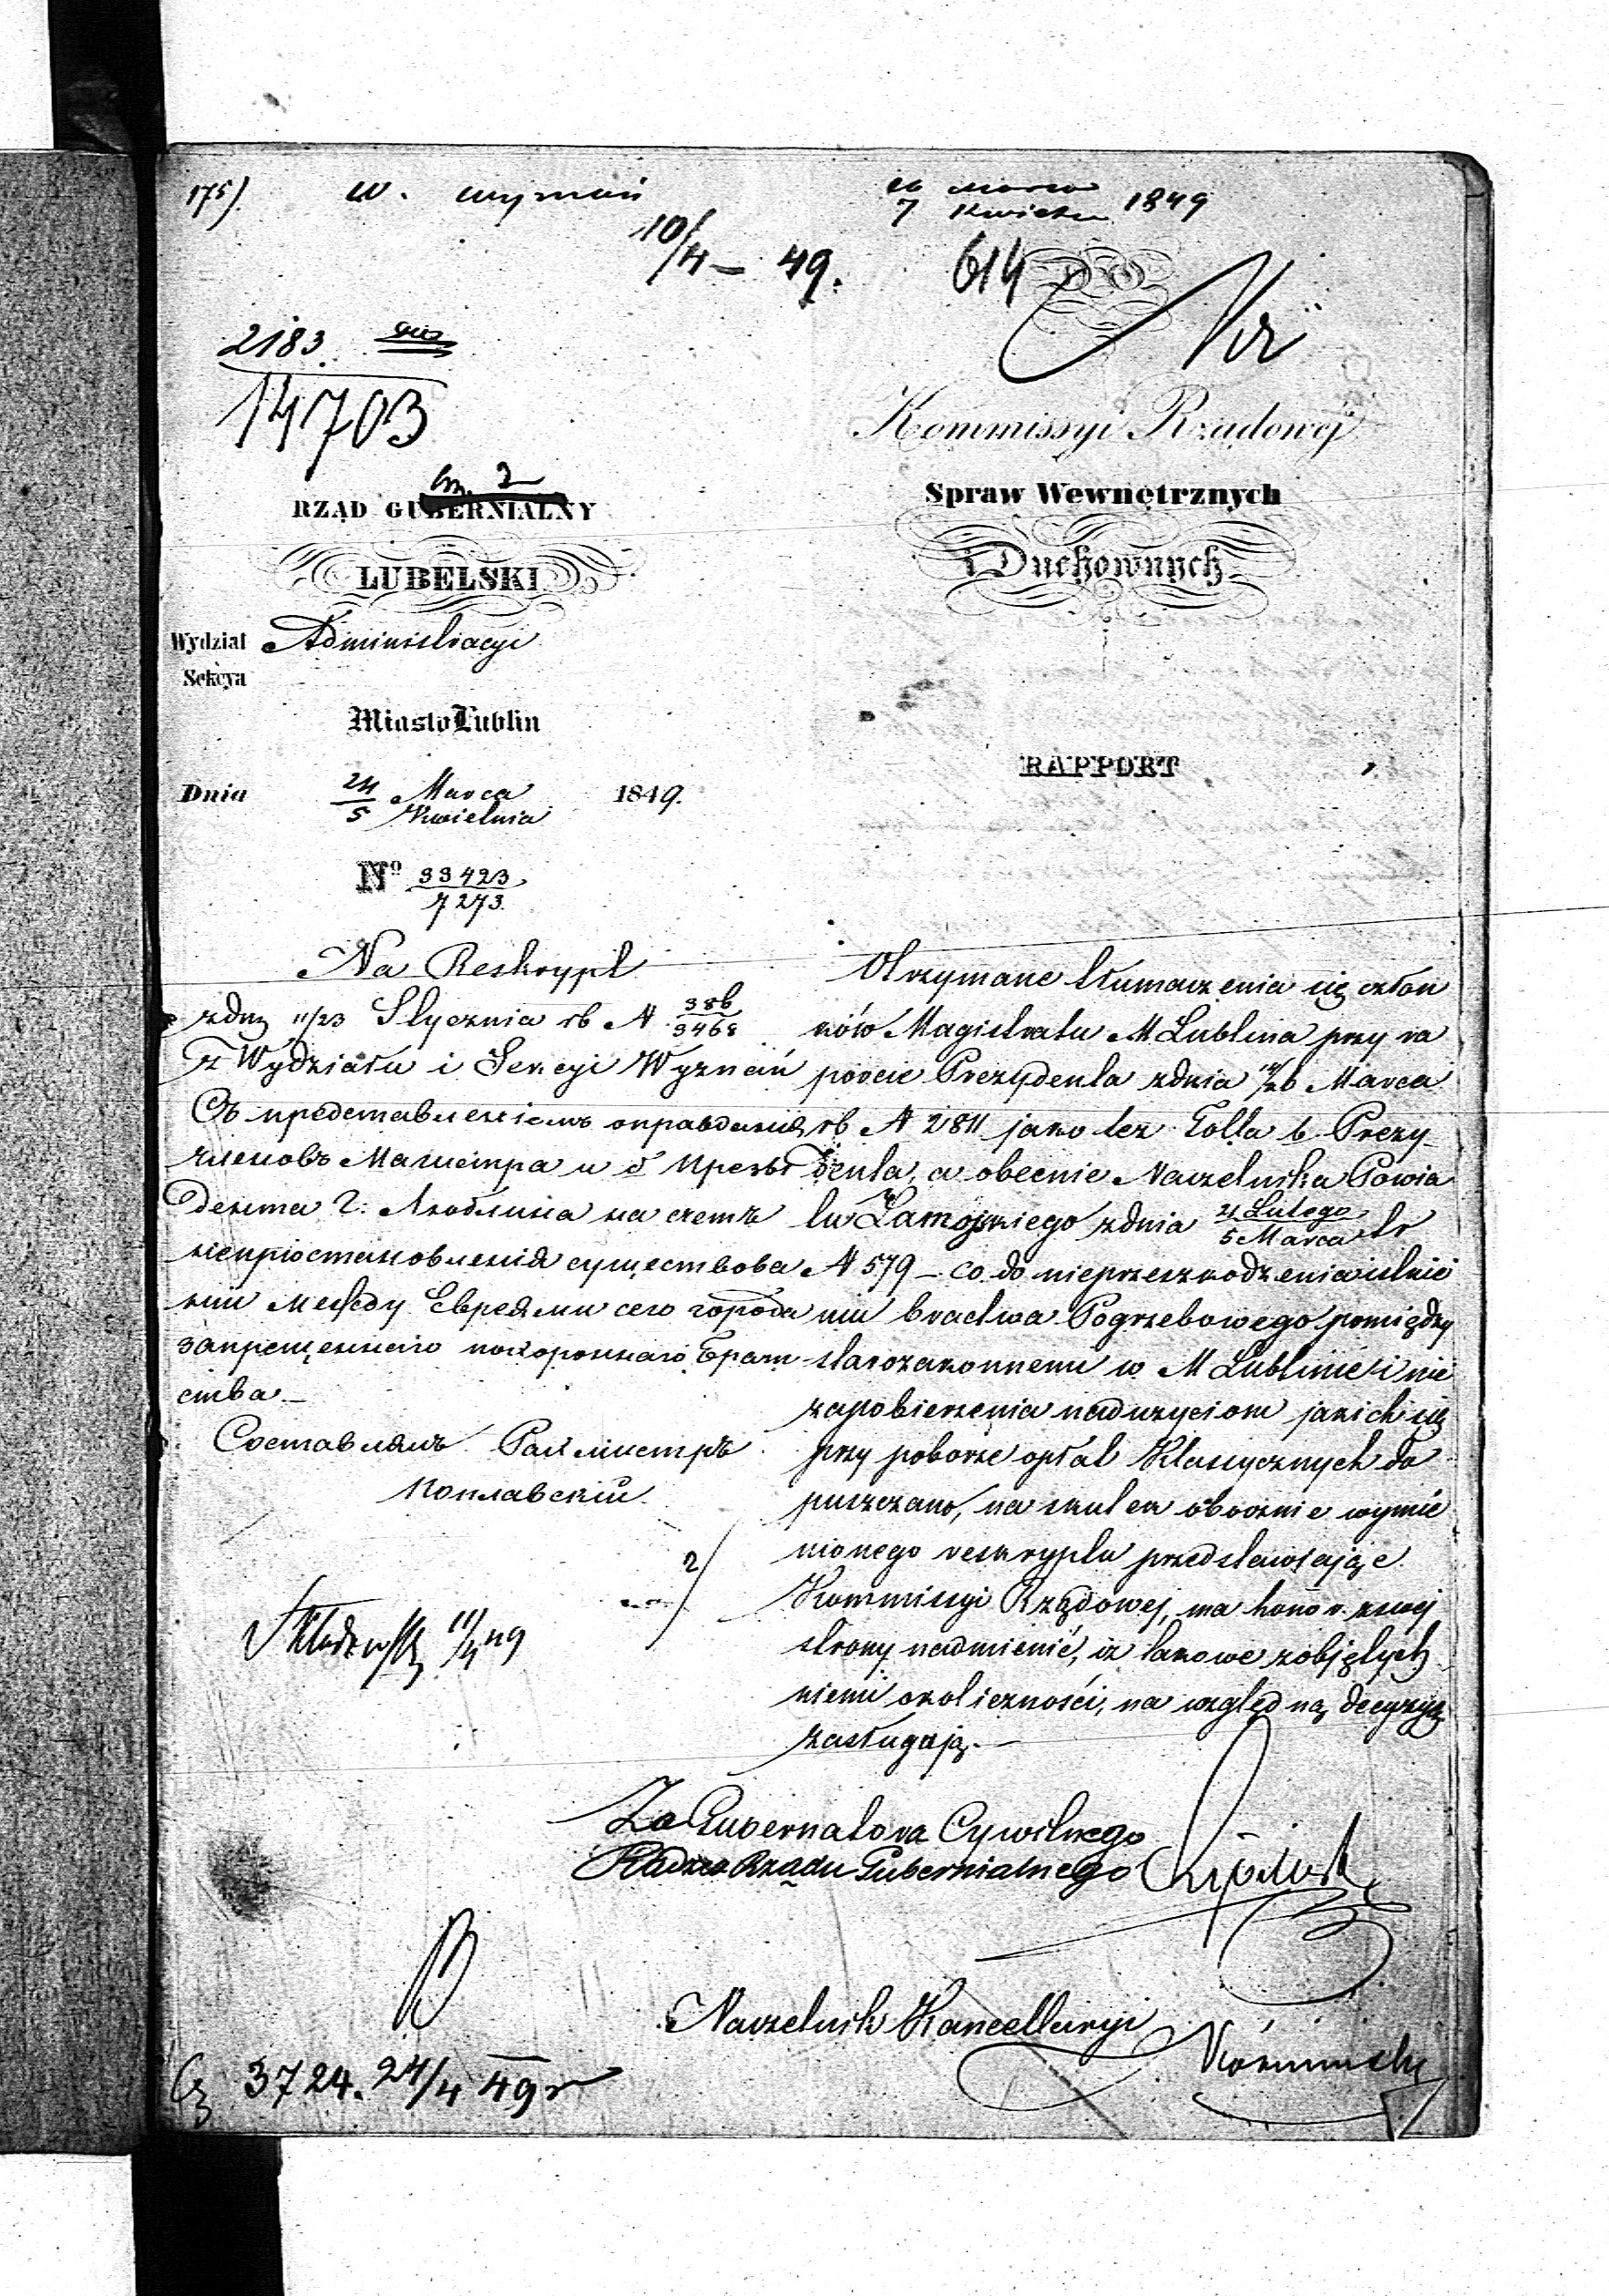 175). W. wyznań
26 Marca
7 Kwietn 1849
10/4 – 49.
614
DO
2183
14703
Kommissyi Rządowéj
RZĄD GUBERNIALNY
Spraw Wewnętrznych
LUBELSKI
i Duchownych
Wydział Administracyi
Sekcya
Miasto Lublin
RAPPORT
Dnia 24 Marca 1849.
5 Kwietnia
Nº 33423
7273
Na Reskrypt
zdnia 11/23 Stycznia rb N 386/3468
z Wydziału i Sekcyi Wyznań
Съ представленіемъ оправданія
членовъ Магистра и б Прези
дента г: Люблина на счетъ
непріостановленія существова
нія между Евреями сего города
запрещеннаго похороннаго Брат
ства.—
Составлялъ Рахмистръ
Поплавскій.
Otrzymane tłumaczenia się człon
ków Magistratu M Lublina przy ra
porcie Prezydenta zdnia 14/26 Marca
rb N 2811 jako też Golla b. Prezy
denta, a obecnie Naczelnika Powia
tu Zamojskiego zdnia 21 Lutego/5 Marca tr
N 579 – co do nieprzeszkodzenia istnie
niu bractwa Pogrzebowego pomiędzy
starozakonnemi w M Lublinie i nie
zapobieżenia nadużyciom jakich się
przy poborze opłat Klassycznych do
puszczano, na skutek obocznie wymie
nionego reskryptu przedstawiając
Kommissyi Rządowej, ma honor zswej
strony nadmienić, iż takowe zobjętych
niemi okoliczności, na względną decyzyę
zasługują.—
11/4 49
Za Gubernatora Cywilnego
Radzca Rządu Gubernialnego
Naczelnik Kancellaryi
3724. 24/4 49 r